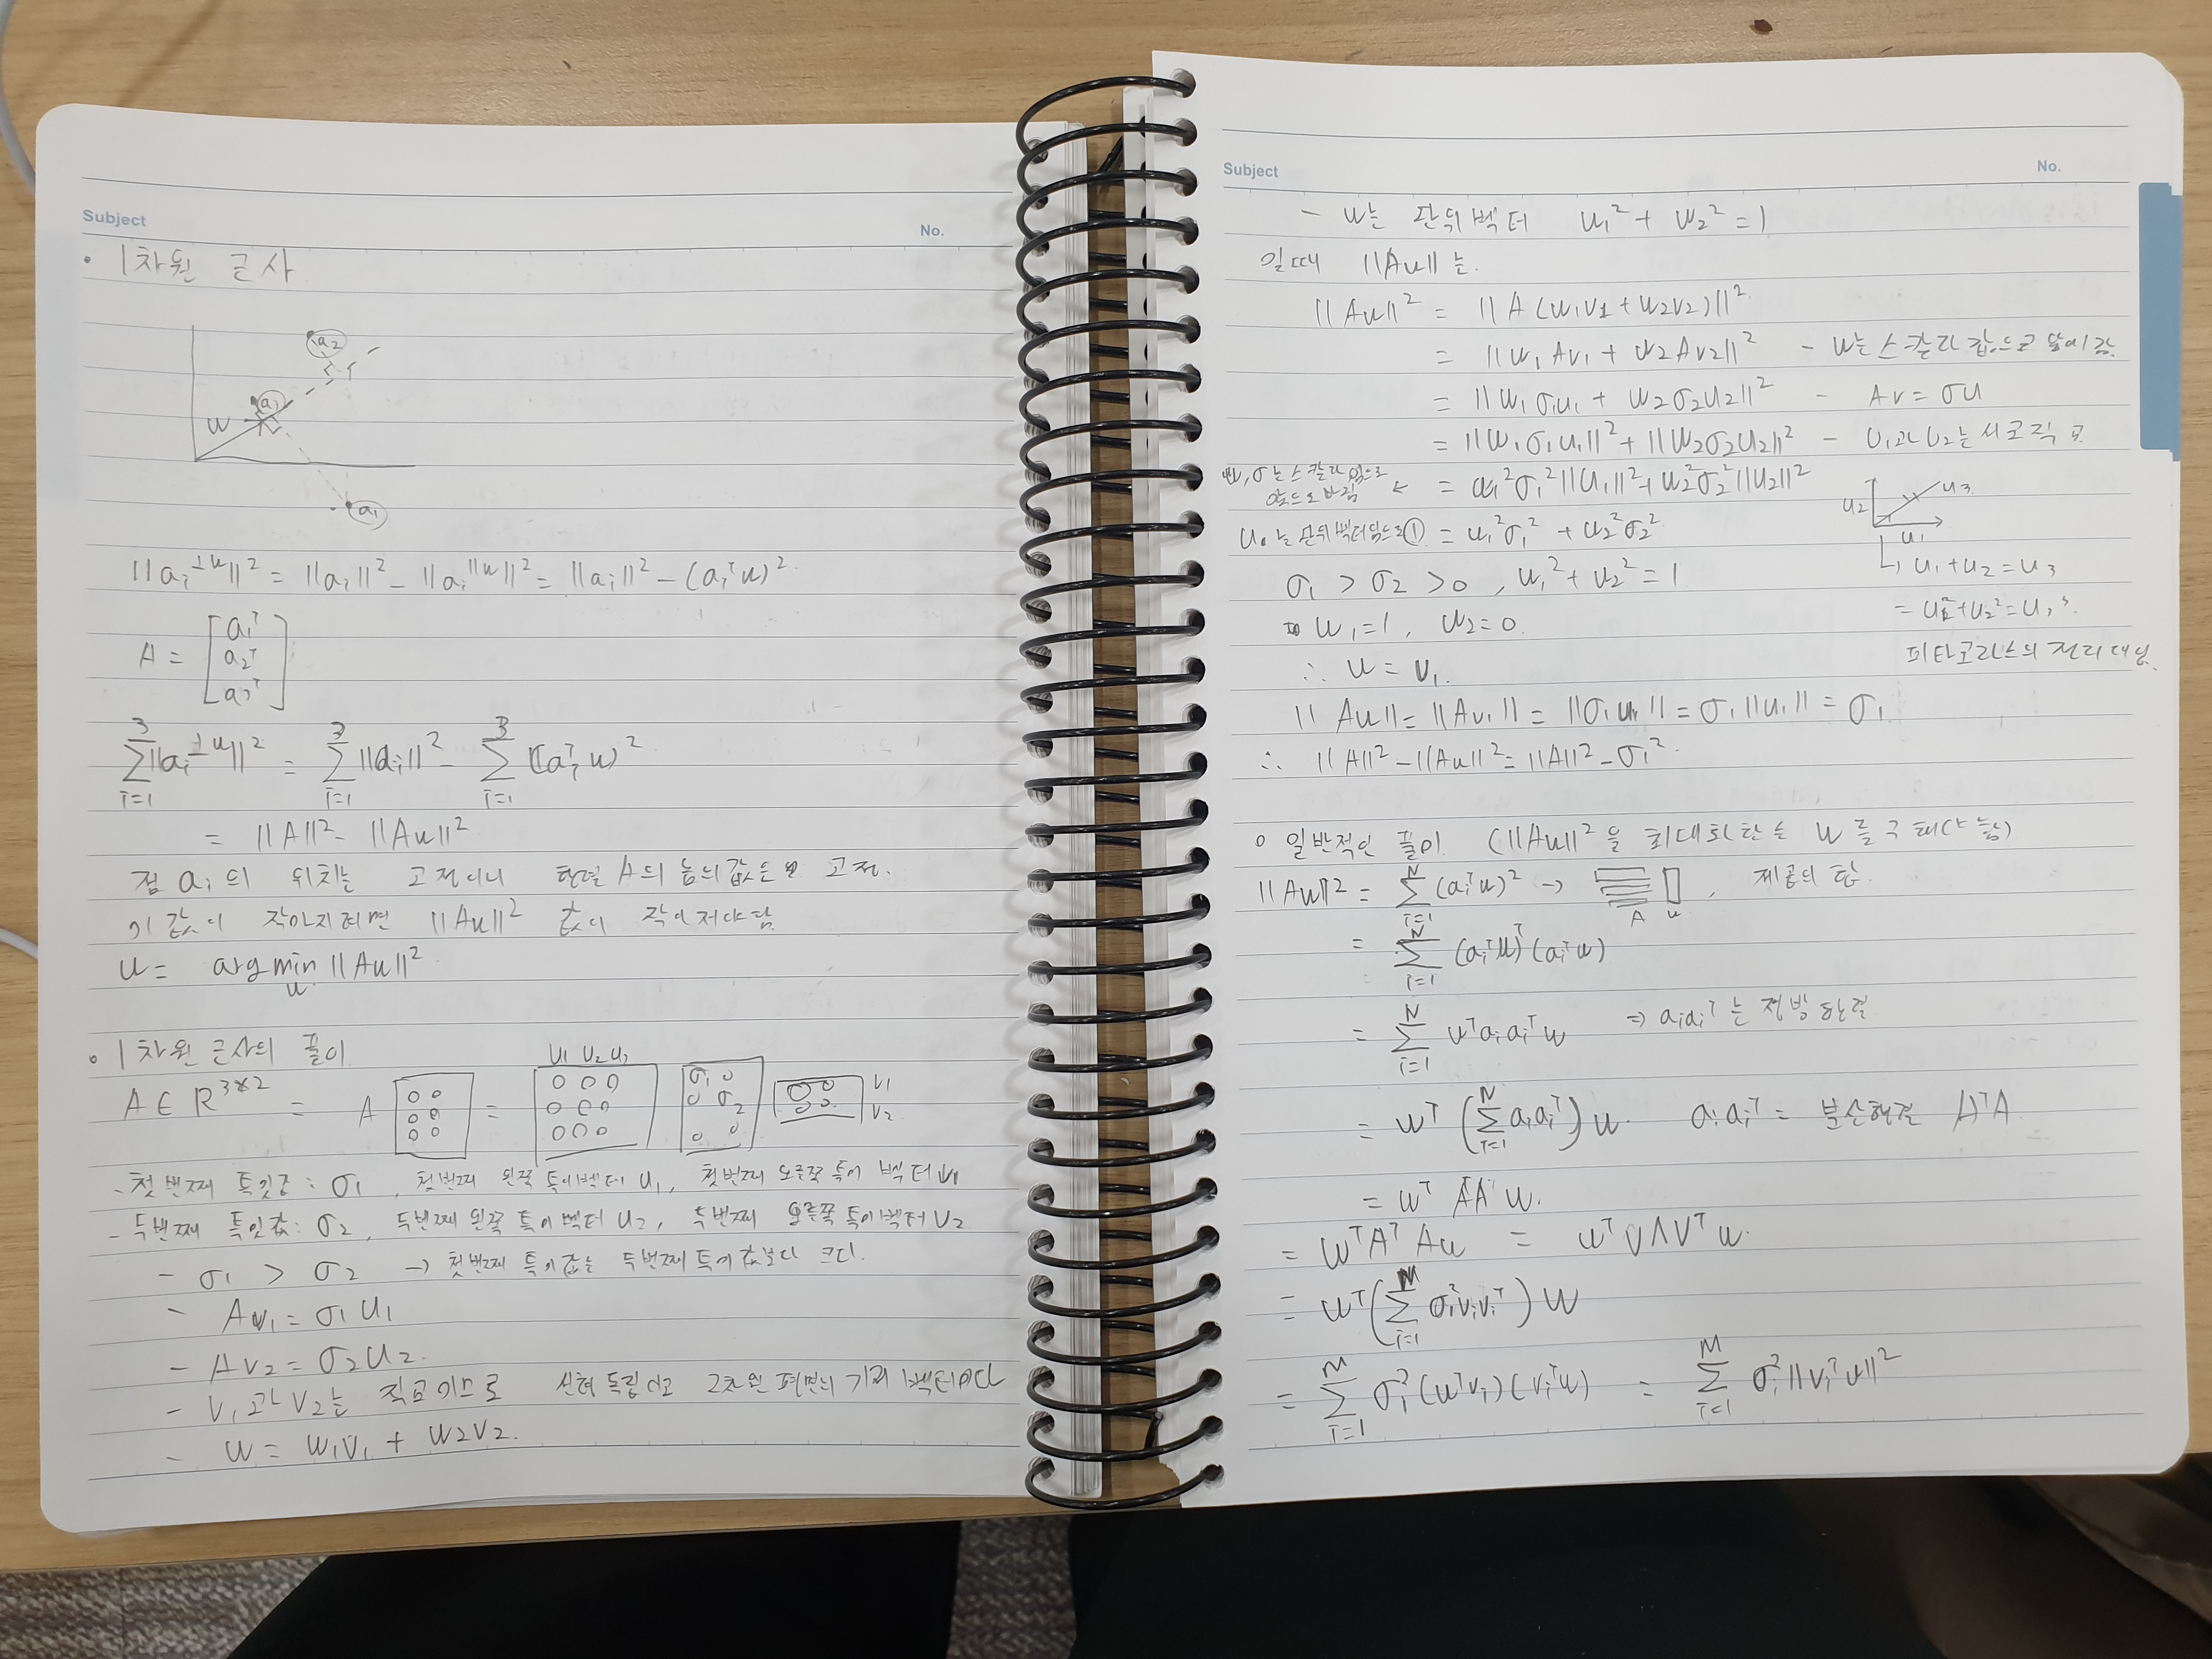 Subject
No.
• 1차원 근사
a2
a3
w
a1
||ai^⊥w||² = ||ai||² - ||ai^∥w||² = ||ai||² - (aiᵀw)²
A = [a1ᵀ
a2ᵀ
a3ᵀ]
3 3 3
∑||ai^⊥w||² = ∑||ai||² - ∑(aiᵀw)²
i=1 i=1 i=1
= ||A||² - ||Aw||²
점 ai의 위치는 고정이니 행렬 A의 놈의 값은 고정.
이 값이 작아지려면 ||Aw||² 값이 작아져야 됨
w = arg min ||Aw||²
w
• 1차원 근사의 풀이
u1 u2 u3
A ∈ R^3×2 = A =
σ1 0
0 σ2
0 0
v1
v2
- 첫번째 특잇값: σ1, 첫번째 왼쪽 특이벡터 u1, 첫번째 오른쪽 특이벡터 v1
- 두번째 특잇값: σ2, 두번째 왼쪽 특이벡터 u2, 두번째 오른쪽 특이벡터 v2
- σ1 > σ2 → 첫번째 특이값는 두번째 특이값보다 크다.
- Av1 = σ1u1
- Av2 = σ2u2.
- v1과 v2는 직교이므로 선형 독립이고 2차원 평면의 기저벡터이다
- w = w1v1 + w2v2.
Subject
No.
- w는 단위벡터 w1² + w2² = 1
일때 ||Aw||는.
||Aw||² = ||A(w1v1+w2v2)||²
= ||w1Av1 + w2Av2||² - w는 스칼라 값으로
= ||w1σ1u1 + w2σ2u2||² - Av = σu
= ||w1σ1u1||² + ||w2σ2u2||² - u1과 u2는 서로 직교
w, σ는 스칼라임으로
앞으로 빠짐 ← = w1²σ1²||u1||² + w2²σ2²||u2||²
u3
u2
u1
u는 단위벡터임으로① = w1²σ1² + w2²σ2²
σ1 > σ2 > 0, w1² + w2² = 1
u1 + u2 = u3
= u1²+u2²=u3².
w1=1, w2=0.
피타고라스의 정리 대입.
∴ w = v1.
||Aw|| = ||Av1|| = ||σ1u1|| = σ1||u1|| = σ1
∴ ||A||² - ||Aw||² = ||A||² - σ1².
o 일반적인 풀이 (||Aw||²을 최대화 하는 w를 구해야 함)
N
||Aw||² = ∑(aiᵀw)² → A w, 제곱의 합
i=1
N
= ∑(aiᵀw)ᵀ(aiᵀw)
i=1
N
= ∑wᵀaiaiᵀw ⇒ aiaiᵀ는 정방행렬
i=1
N
= wᵀ(∑aiaiᵀ)w. aiaiᵀ = 분산행렬 AᵀA
i=1
= wᵀAᵀAw.
= wᵀAᵀAw = wᵀVΛVᵀw.
M
= wᵀ(∑σi²viviᵀ)w
i=1
M M
= ∑σi²(wᵀvi)(viᵀw) = ∑σi²||viᵀw||²
i=1 i=1